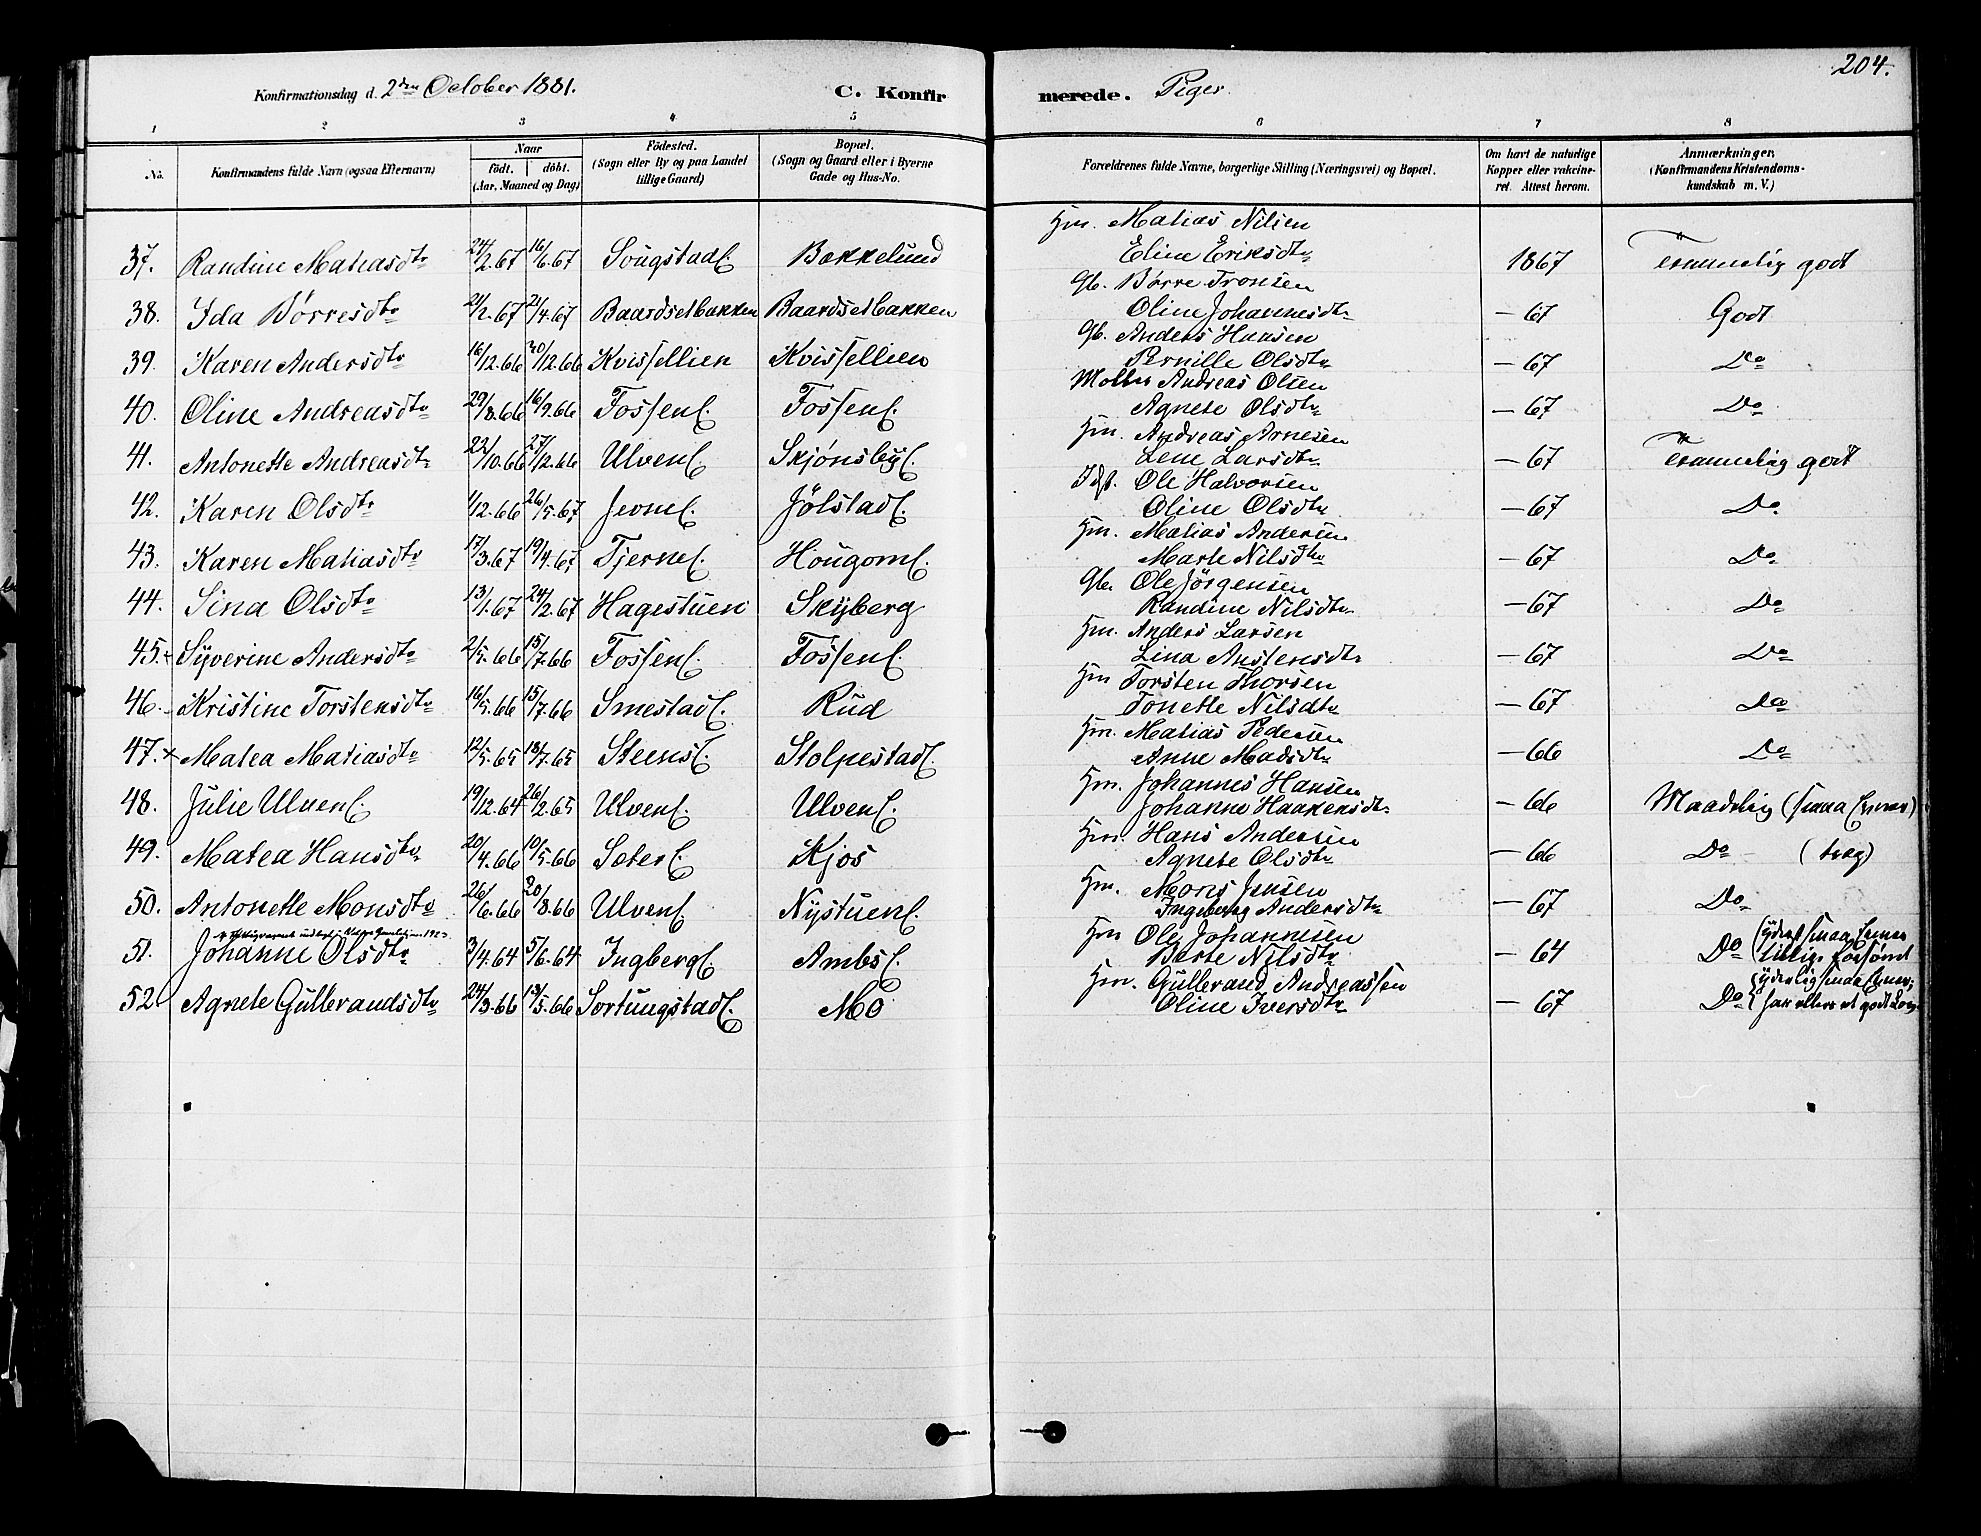 204.
Konfirmationsdag d. 2den October 1881. C. Konfirmerede. Piger.
1 2 3 4 5 6 7 8
No. Konfirmandens fulde Navn (ogsaa Efternavn) Naar født. døbt. (Aar, Maaned og Dag) Fødested. (Sogn eller By og paa Landet tillige Gaard) Bopæl. (Sogn og Gaard eller i Byerne Gade og Hus-No. Forældrenes fulde Navne, borgerlige Stilling (Næringsvei) og Bopæl. Om havt de naturlige Kopper eller vakcineret. Attest herom. Anmærkninger. (Konfirmandens Kristendomskundskab m. V.)
Hm. Matias Nilsen
37. Randine Matiasdtr 24/2.67 16/6.67 Sougstad E. Bakkelund Eline Eriksdtr 1867 Temmelig godt
Gb. Børre Tronsen
38. Ida Børresdtr 21/2.67 21/4.67 Baardsetbakken Baardsetbakken Oline Johannesdtr — 67 Godt
Gb. Anders Hansen
39. Karen Andersdtr 16/12.66 30/12.66 Kvissellien Kvissellien Pernille Olsdtr — 67 Do
Møller Andreas Olsen
40. Oline Andreasdtr 29/8.66 16/9.66 Fossen E. Fossen E. Agnete Olsdtr — 67 Do
Hm. Andreas Arnesen
41. Antonette Andreasdtr 22/10.66 27/12.66 Ulven E. Skjønsby E. Lene Larsdtr — 67 Temmelig godt
Idst. Ole Halvorsen
42. Karen Olsdtr 1/12.66 26/5.67 Jevne E. Jølstad E. Oline Olsdtr — 67 Do
Hm. Matias Andersen
43. Karen Matiasdtr 17/3.67 19/4.67 Tjerne E. Hougom E. Marte Nilsdtr — 67 Do
Gb. Ole Jørgensen
44. Sina Olsdtr 13/1.67 24/2.67 Hagestuen Skyberg Randine Nilsdtr — 67 Do
Hm. Anders Larsen
45. Syverine Andersdtr 2/5.66 15/7.66 Fossen E. Fossen E. Lina Anstensdtr — 67 Do
Hm Torsten Thorsen
46. Kristine Torstensdtr 16/5.66 15/7.66 Smestad E. Rud Tonette Nilsdtr — 67 Do
Hm. Matias Pedersen
47. x Matea Matiasdtr 12/5.65 18/7.65 Steens E. Stolpestad E. Anne Madsdtr — 66 Do
Hm. Johannes Hansen
48. Julie Ulven E. 19/12.64 26/2.65 Ulven E. Ulven E. Johanne Haakensdtr — 66 Maadelig (smaa Evner)
Hm. Hans Andersen
49. Matea Hansdtr 20/4.66 10/5.66 Sæter E. Kjos Agnete Olsdtr — 66 Do — (træg)
Hm. Mons Jensen
50. Antonette Monsdtr 26/6.66 20/8.66 Ulven E. Nystuen E. Ingeborg Andersdtr — 67 Do
Hm Ole Johannesen
51. Johanne Olsdtr 3/4.64 5/6.64 Ingberg E. Ambs E. Berte Nilsdtr — 64 Do (yderst smaa Evner
Hm. Gullerand Andreassen
52 Agnete Gullerandsdtr 24/3.66 13/5.66 Sortungstad E. Mo Oline Iversdtr — 67 Do (yderlig smaa Evner,